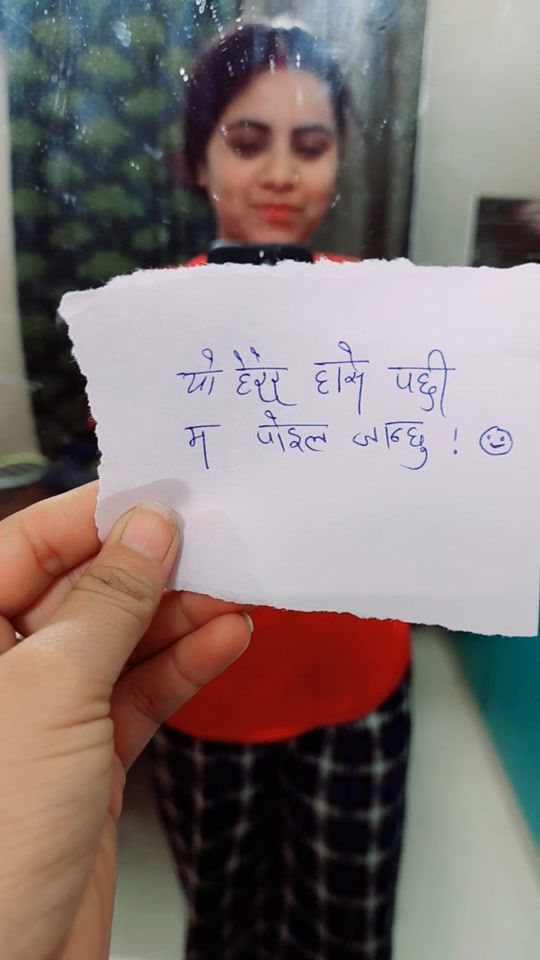 यो हेरेर हासे पछी
म पोइल जान्छु ! ☺